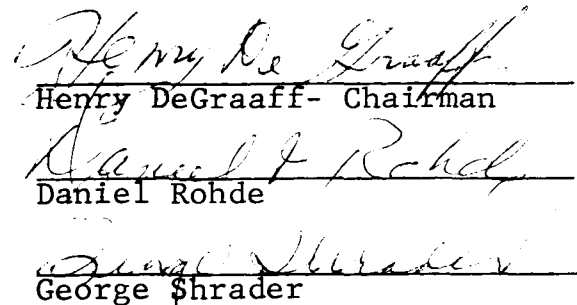 Henry De Graaff
Henry DeGraaff- Chairman
Daniel J Rohde
Daniel Rohde
George Shrader
George $hrader